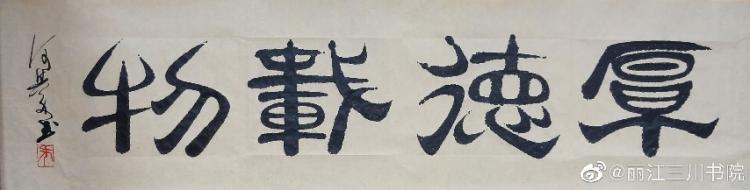 厚德載物
@丽江三川书院